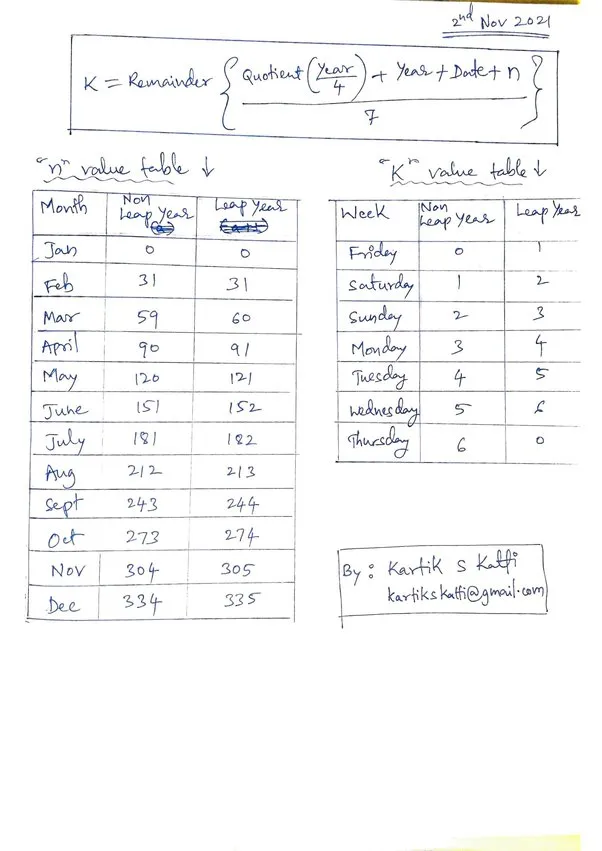 2nd Nov 2021
K = Remainder { Quotient (Year/4) + Year + Date + n / 7 }
"n" value table ↓
Month Non Leap Year Leap Year
Jan 0 0
Feb 31 31
Mar 59 60
April 90 91
May 120 121
June 151 152
July 181 182
Aug 212 213
Sept 243 244
Oct 273 274
Nov 304 305
Dec 334 335
"K" value table ↓
Week Non Leap Year Leap Year
Friday 0 1
Saturday 1 2
Sunday 2 3
Monday 3 4
Tuesday 4 5
Wednesday 5 6
Thursday 6 0
By: Kartik S Katti
kartikskatti@gmail.com